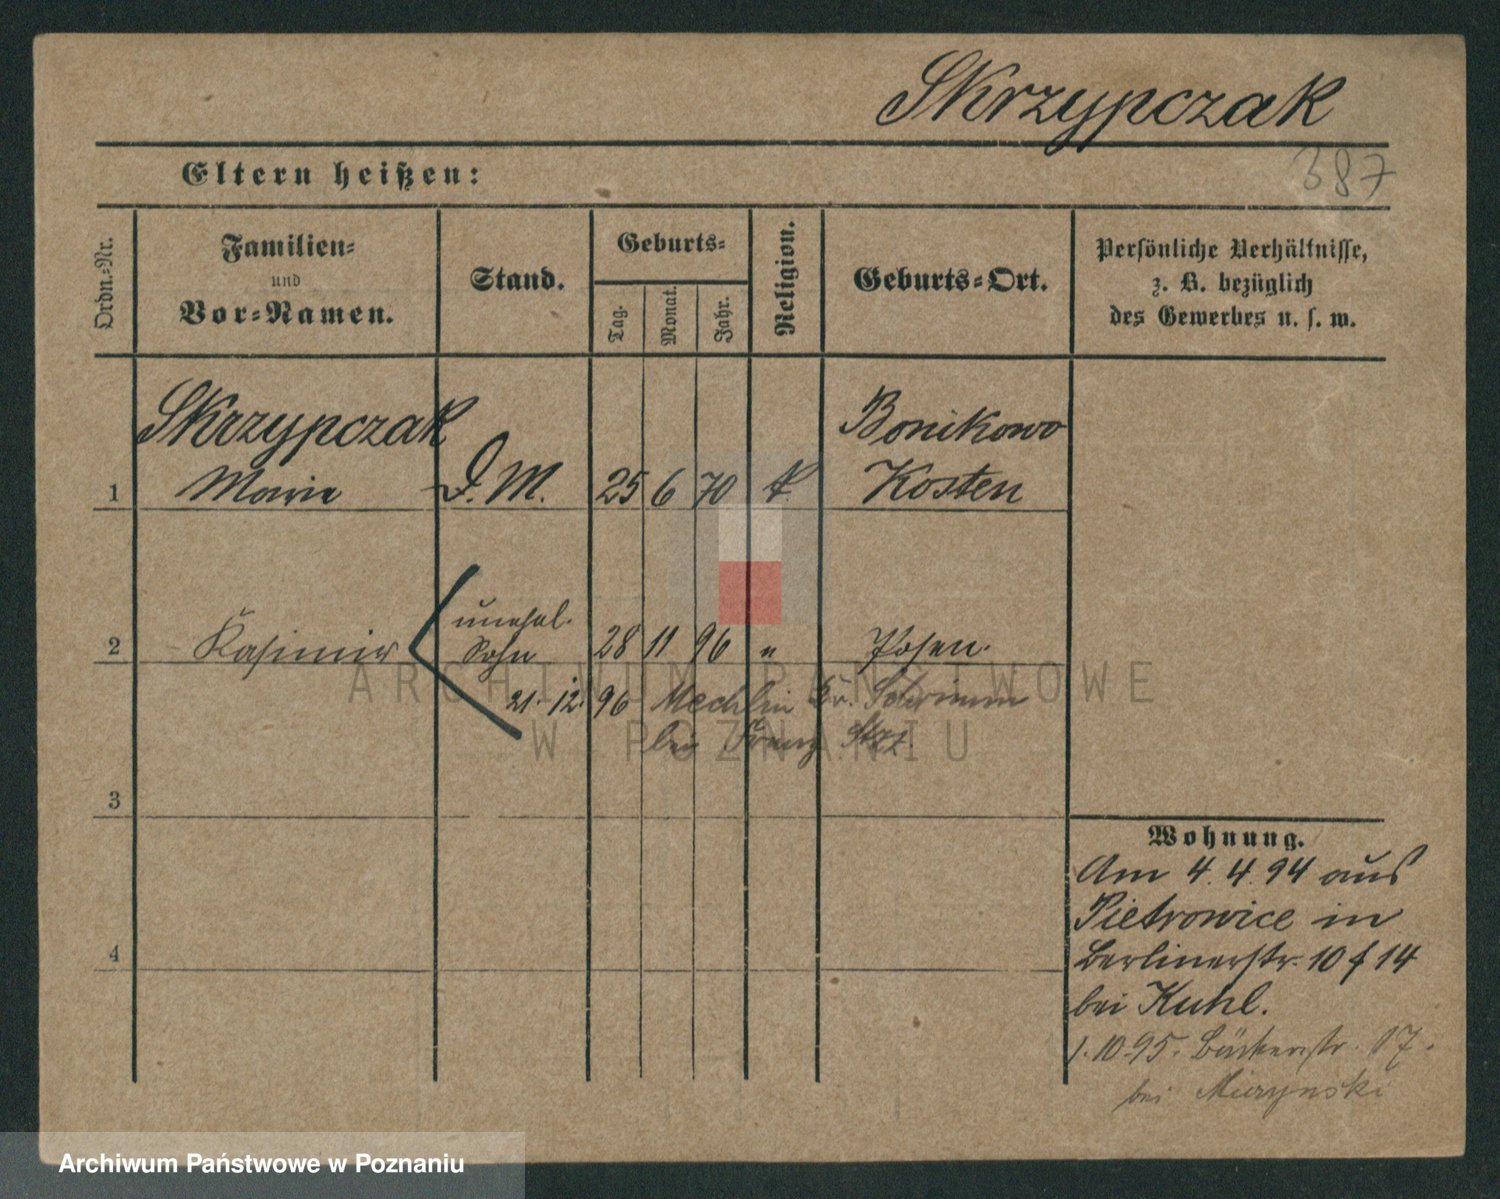 Skrzypczak
387
Eltern heißen:
Ordn.-Nr.
Familien-
und
Vor-Namen.
Stand.
Geburts-
Tag.
Monat.
Jahr.
Religion.
Geburts-Ort.
Persönliche Verhältnisse,
z. B. bezüglich
des Gewerbes u. s. w.
Skrzypczak Bonikowo
1 Marie D. M. 25 6 70 k. Kosten
unehel.
2 Kasimir Sohn 28 11 96 " Posen.
21. 12. 96 Mechlin Kr. Schrimm
bei Franz
3
4
Wohnung.
Am 4. 4. 94 aus
Pietrowice in
Berlinerstr. 10 f 14
bei Kuhl.
1. 10 95. Bäckerstr. 17.
bei
ARCHIWUM PAŃSTWOWE
W POZNANIU
Archiwum Państwowe w Poznaniu